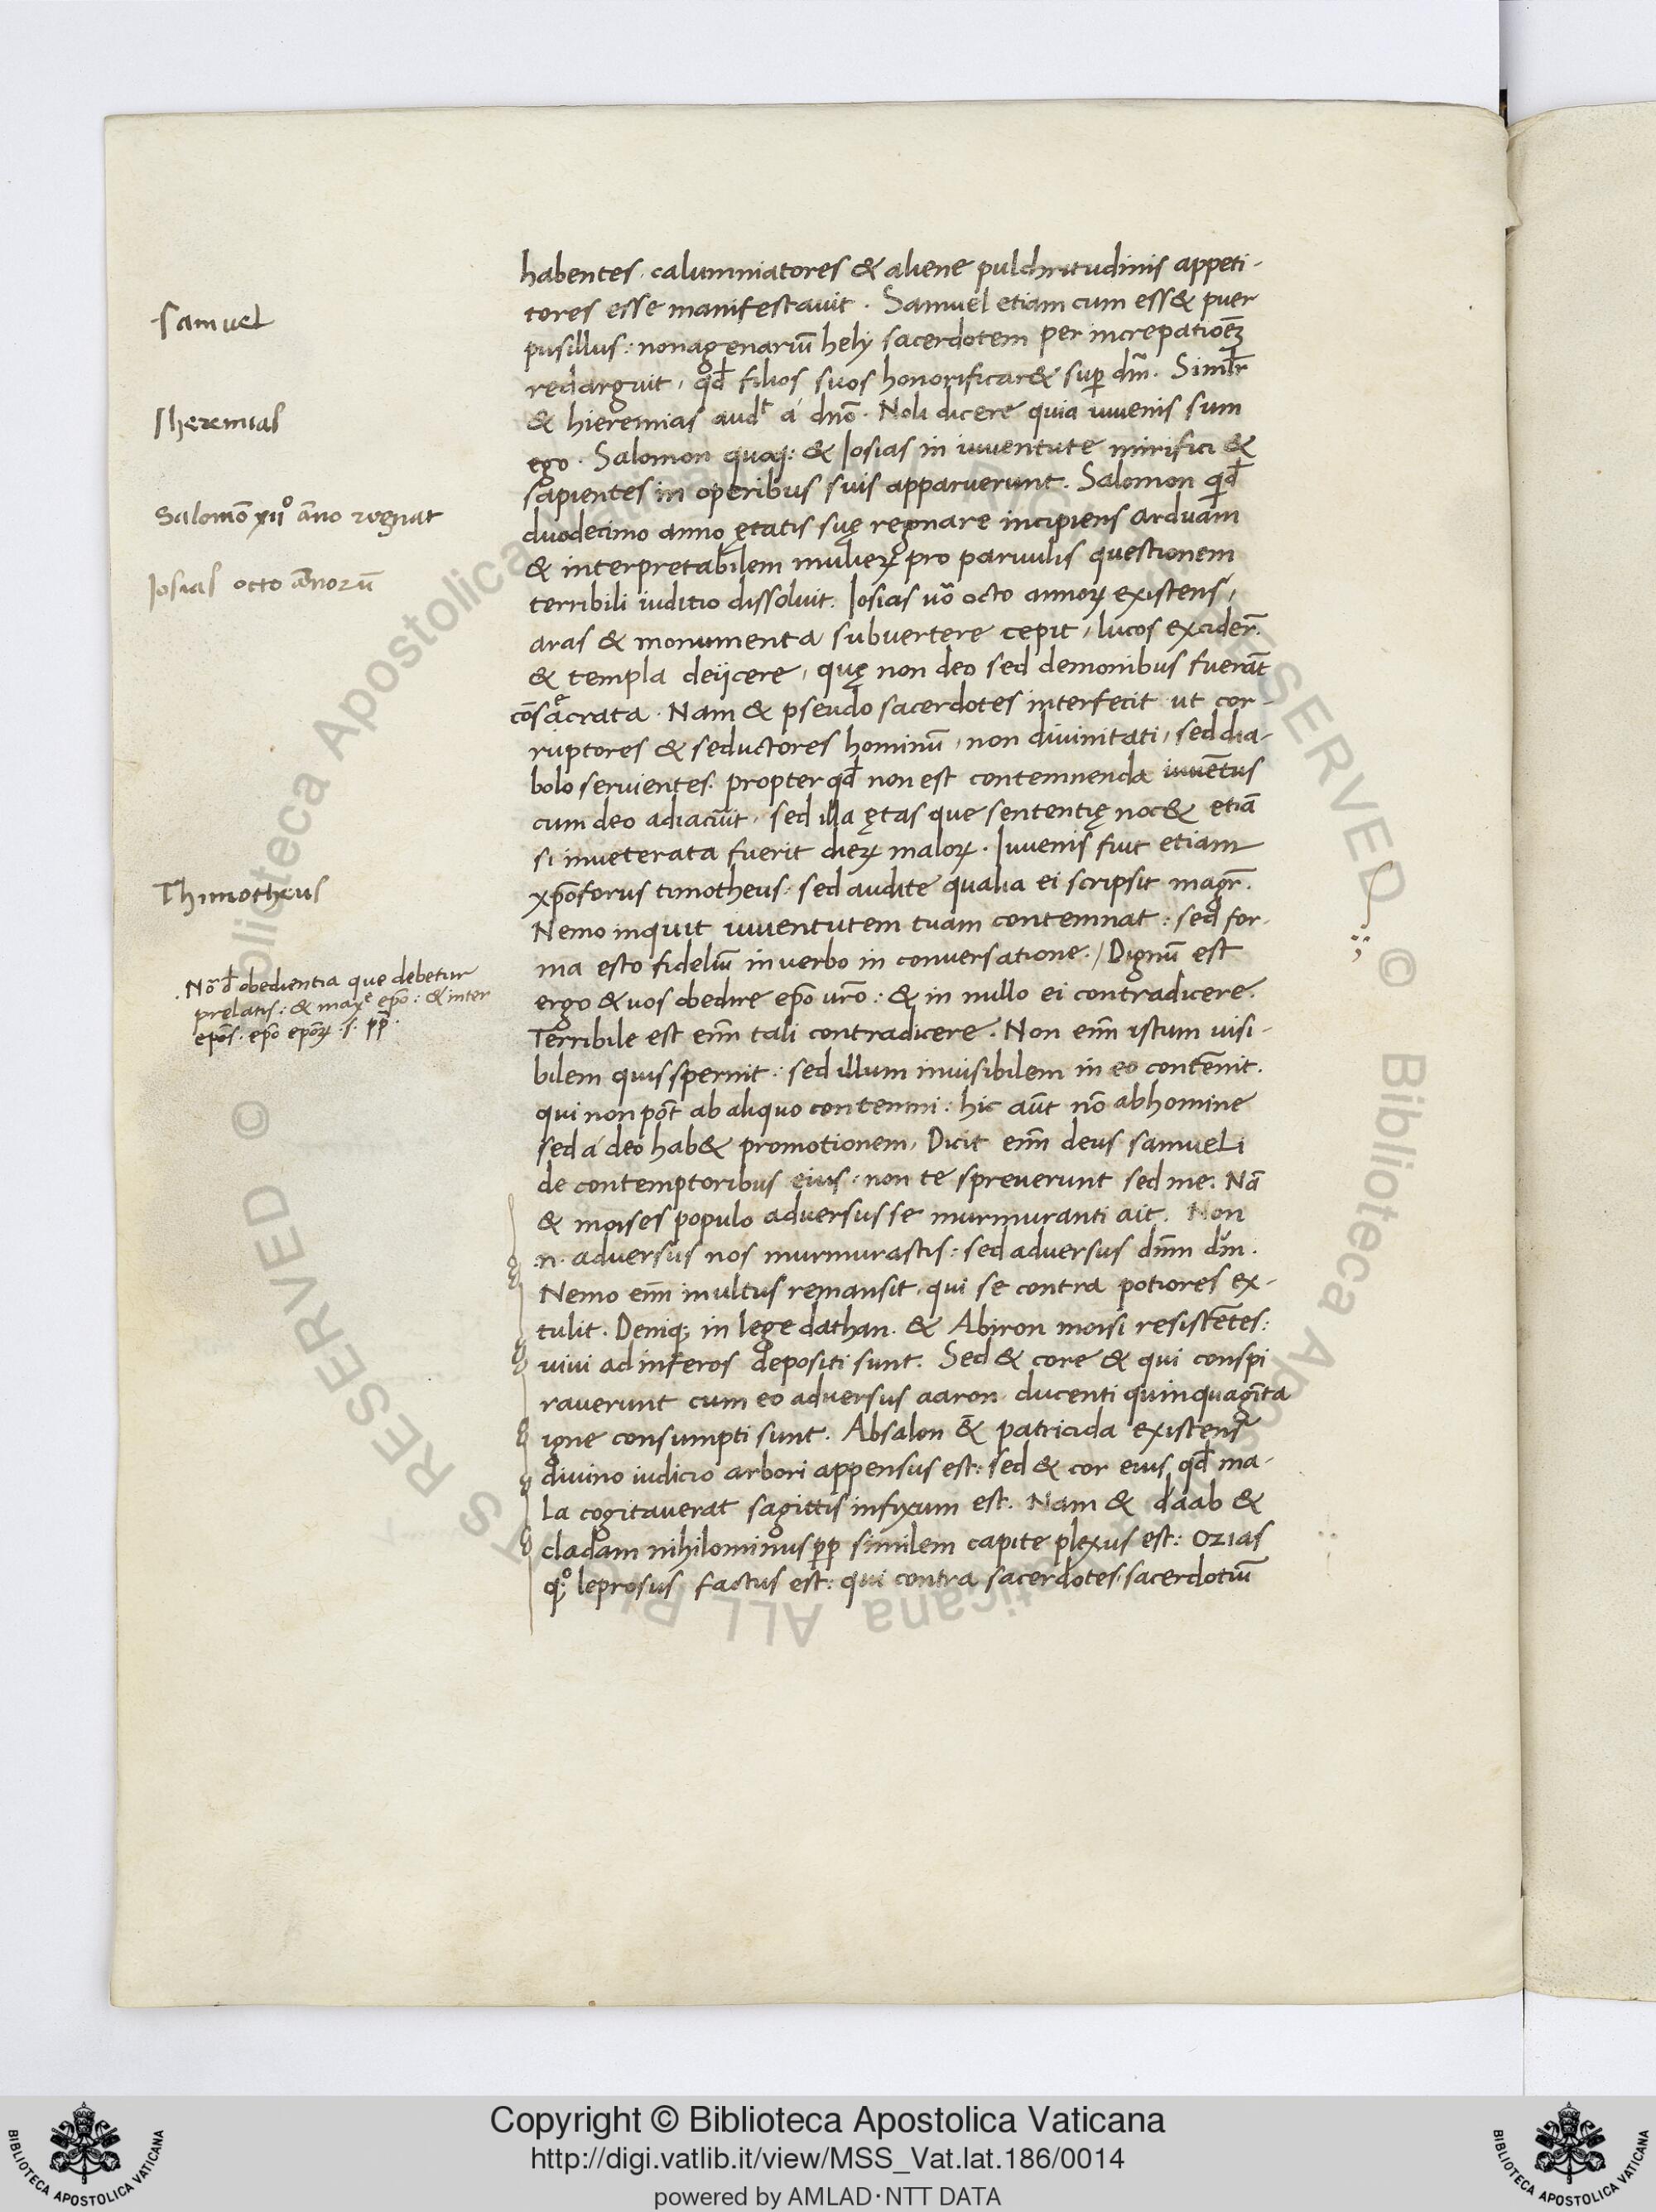 Samuel
Iheremias
Salomō xii° āno regnat
Iosias octo ānorū
Thimotheus
.Nō d̄ obedientia que debetur
prelatis: & maxe ep̄o: & inter
ep̄os. ep̄o ep̄oꝝ .s. pp̄.
habentes. calumniatores & aliene pulchritudinis appeti-
tores esse manifestavit. Samuel etiam cum ess& puer
pusillus: nonagenariū hely sacerdotem per increpatioēꝫ
redarguit, qd̄ filios suos honorificar& sup̄ dm̄. Simlr̄
& hieremias audt a dn̄o. Noli dicere quia iuuenis sum
ego. Salomon quoqꝫ: & Iosias in iuuentute mirifici &
sapientes in operibus suis apparuerunt. Salomon qd̄
duodecimo anno ętatis suę regnare incipiens arduam
& interpretabilem mulierꝝ pro paruulis questionem
terribili iuditio dissoluit. Iosias uo octo annoꝝ existens,
aras & monumenta subvertere cepit, lucos exciderē.
& templa deijcere, quę non deo sed demonibus fuerāt
cōsaecrata. Nam & pseudo sacerdotes interfecit ut cor-
ruptores & seductores hominū, non divinitati, sed dia-
bolo seruientes. propter qd̄ non est contemnenda iuuētus
cum deo adiacuit, sed illa ętas que sententię noc& etiā
si inveterata fuerit dieꝝ maloꝝ. Iuuenis fuit etiam
xp̄oforus timotheus: sed audite qualia ei scripsit magr̄.
Nemo inquit iuuentutem tuam contemnat: sed for-
ma esto fideliū in verbo in conversatione./ Dignū est
ergo & uos obedire ep̄o uro: & in nullo ei contradicere.
Terribile est enī tali contradicere. Non enī istum uisi-
bilem quis spernit: sed illum inuisibilem in eo contēnit.
qui non pōt ab aliquo contemni: hic aūt nō ab homine
sed a deo hab& promotionem, Dicit enī deus samueli
de contemptoribus eius: non te spreuerunt sed me. Nā
& moises populo adversus se murmuranti ait. Non
.n. adversus nos murmurastis: sed adversus dn̄m dm̄.
Nemo enī inultus remansit, qui se contra potiores ex-
tulit. Deniqꝫ in lege dathan. & Abiron moisi resistētes:
uiui ad inferos depositi sunt. Sed & core & qui conspi
rauerunt cum eo adversus aaron ducenti quinquagīta
igne consumpti sunt. Absalon & patricida existens
divino iudicio arbori appensus est: sed & cor eius qd̄ ma-
la cogitaverat sagittis infixum est. Nam & daab &
cladam nihilominus pp̄ similem capite plexus est: Ozias
qꝫ° leprosus factus est: qui contra sacerdotes, sacerdotiū
Copyright © Biblioteca Apostolica Vaticana
http://digi.vatlib.it/view/MSS_Vat.lat.186/0014
powered by AMLAD·NTT DATA
BIBLIOTECA APOSTOLICA VATICANA
BIBLIOTECA APOSTOLICA VATICANA